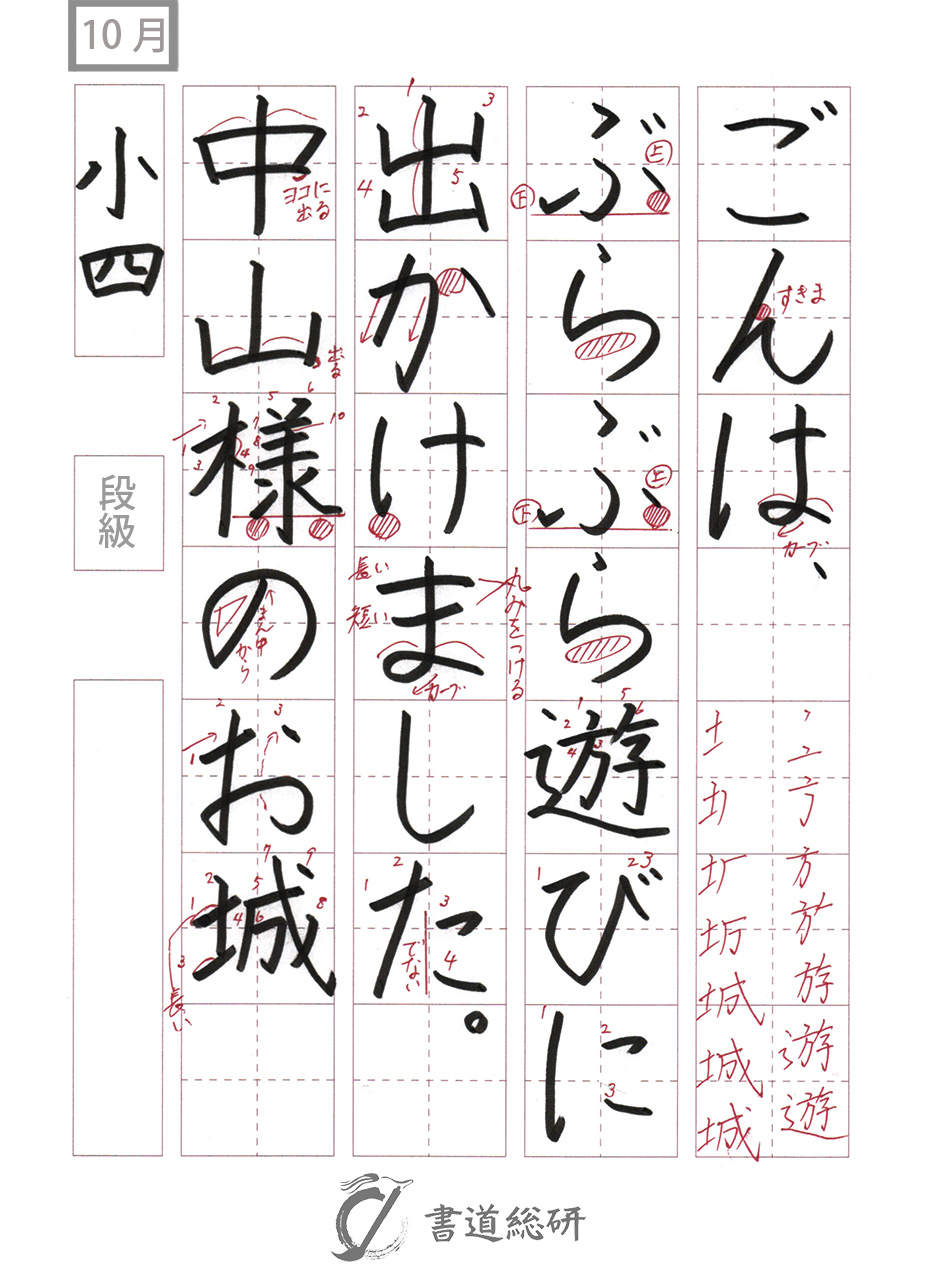 10月
ごんは、
ぶらぶら遊びに
出かけました。
中山様のお城
小四
段級
すきま
カーブ
上
下
上
下
丸みをつける
長い
短い
カーブ
でない
ヨコに出る
出る
まん中から
長い
書道総研